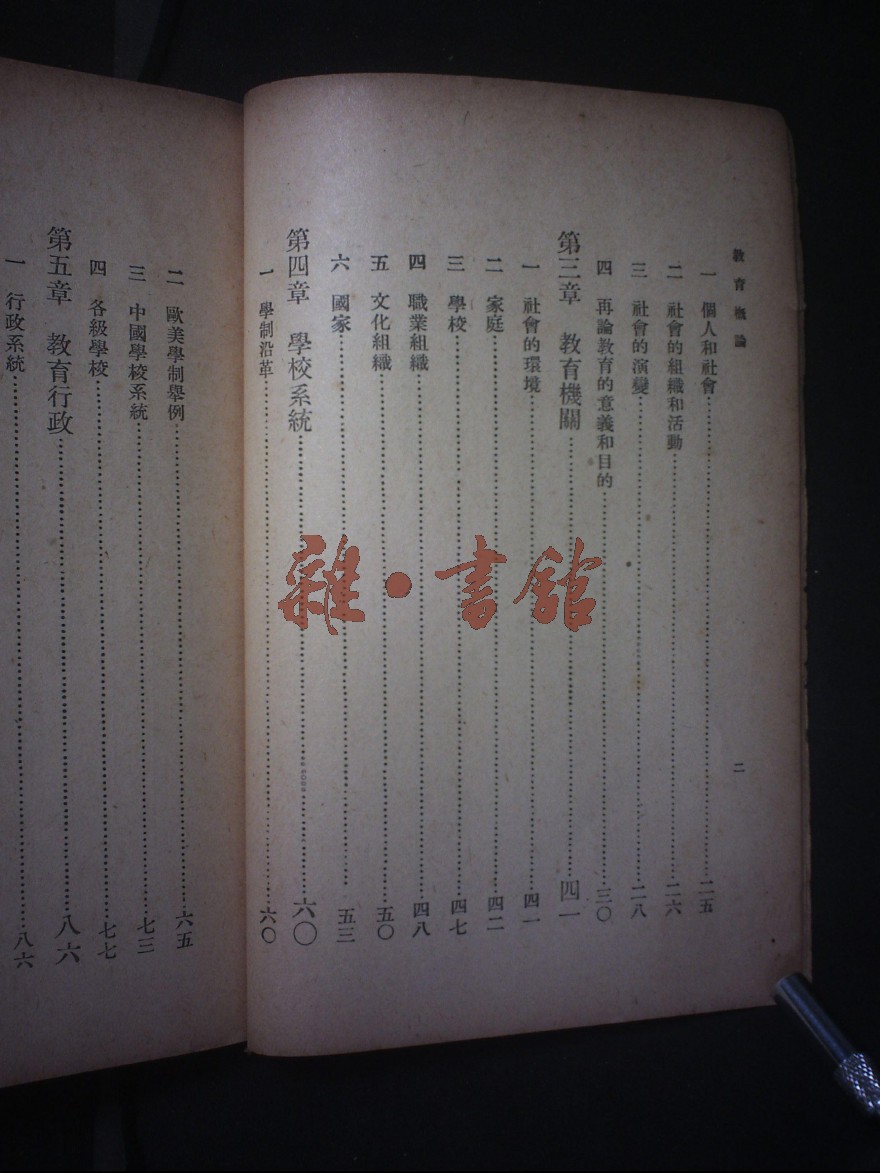 教育概論
二
一　個人和社會……二五
二　社會的組織和活動……二六
三　社會的演變……二八
四　再論教育的意義和目的……三〇
第三章　教育機關……四一
一　社會的環境……四一
二　家庭……四二
三　學校……四七
四　職業組織……四八
五　文化組織……五〇
六　國家……五三
第四章　學校系統……六〇
一　學制沿革……六〇
二　歐美學制舉例……六五
三　中國學校系統……七三
四　各級學校……七七
第五章　教育行政……八六
一　行政系統……八六
雜·書館